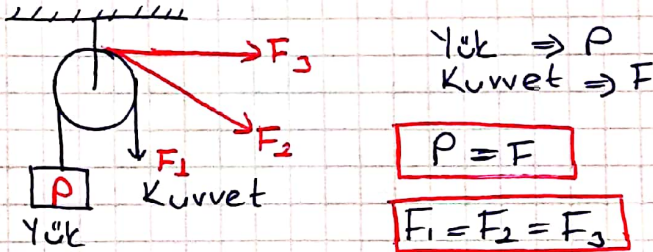 F₃
F₂
F₁
Kuvvet
P
Yük
Yük ⇒ P
Kuvvet ⇒ F
P = F
F₁ = F₂ = F₃